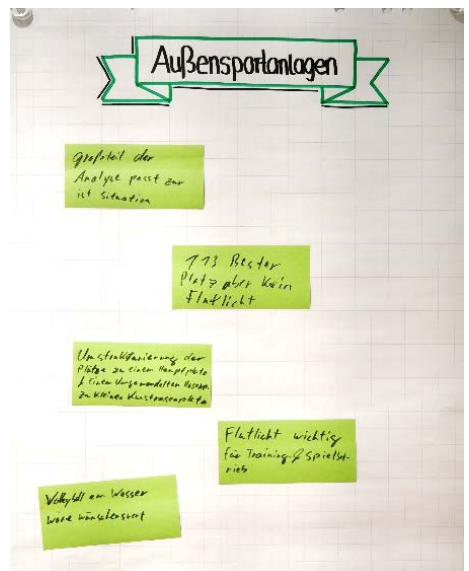 Außensportanlagen
großteil der
Analyse passt zur
ist situation
113 Bester
Platz aber kein
Flutlicht
Umstrukturierung der
Plätze zu einem Hauptplatz
& einen umgewandelten Rasen
zu kleinen Kunstrasenplatz
Flutlicht wichtig
für Training & Spielbet-
rieb
Volleyball am Wasser
wäre wünschenswert